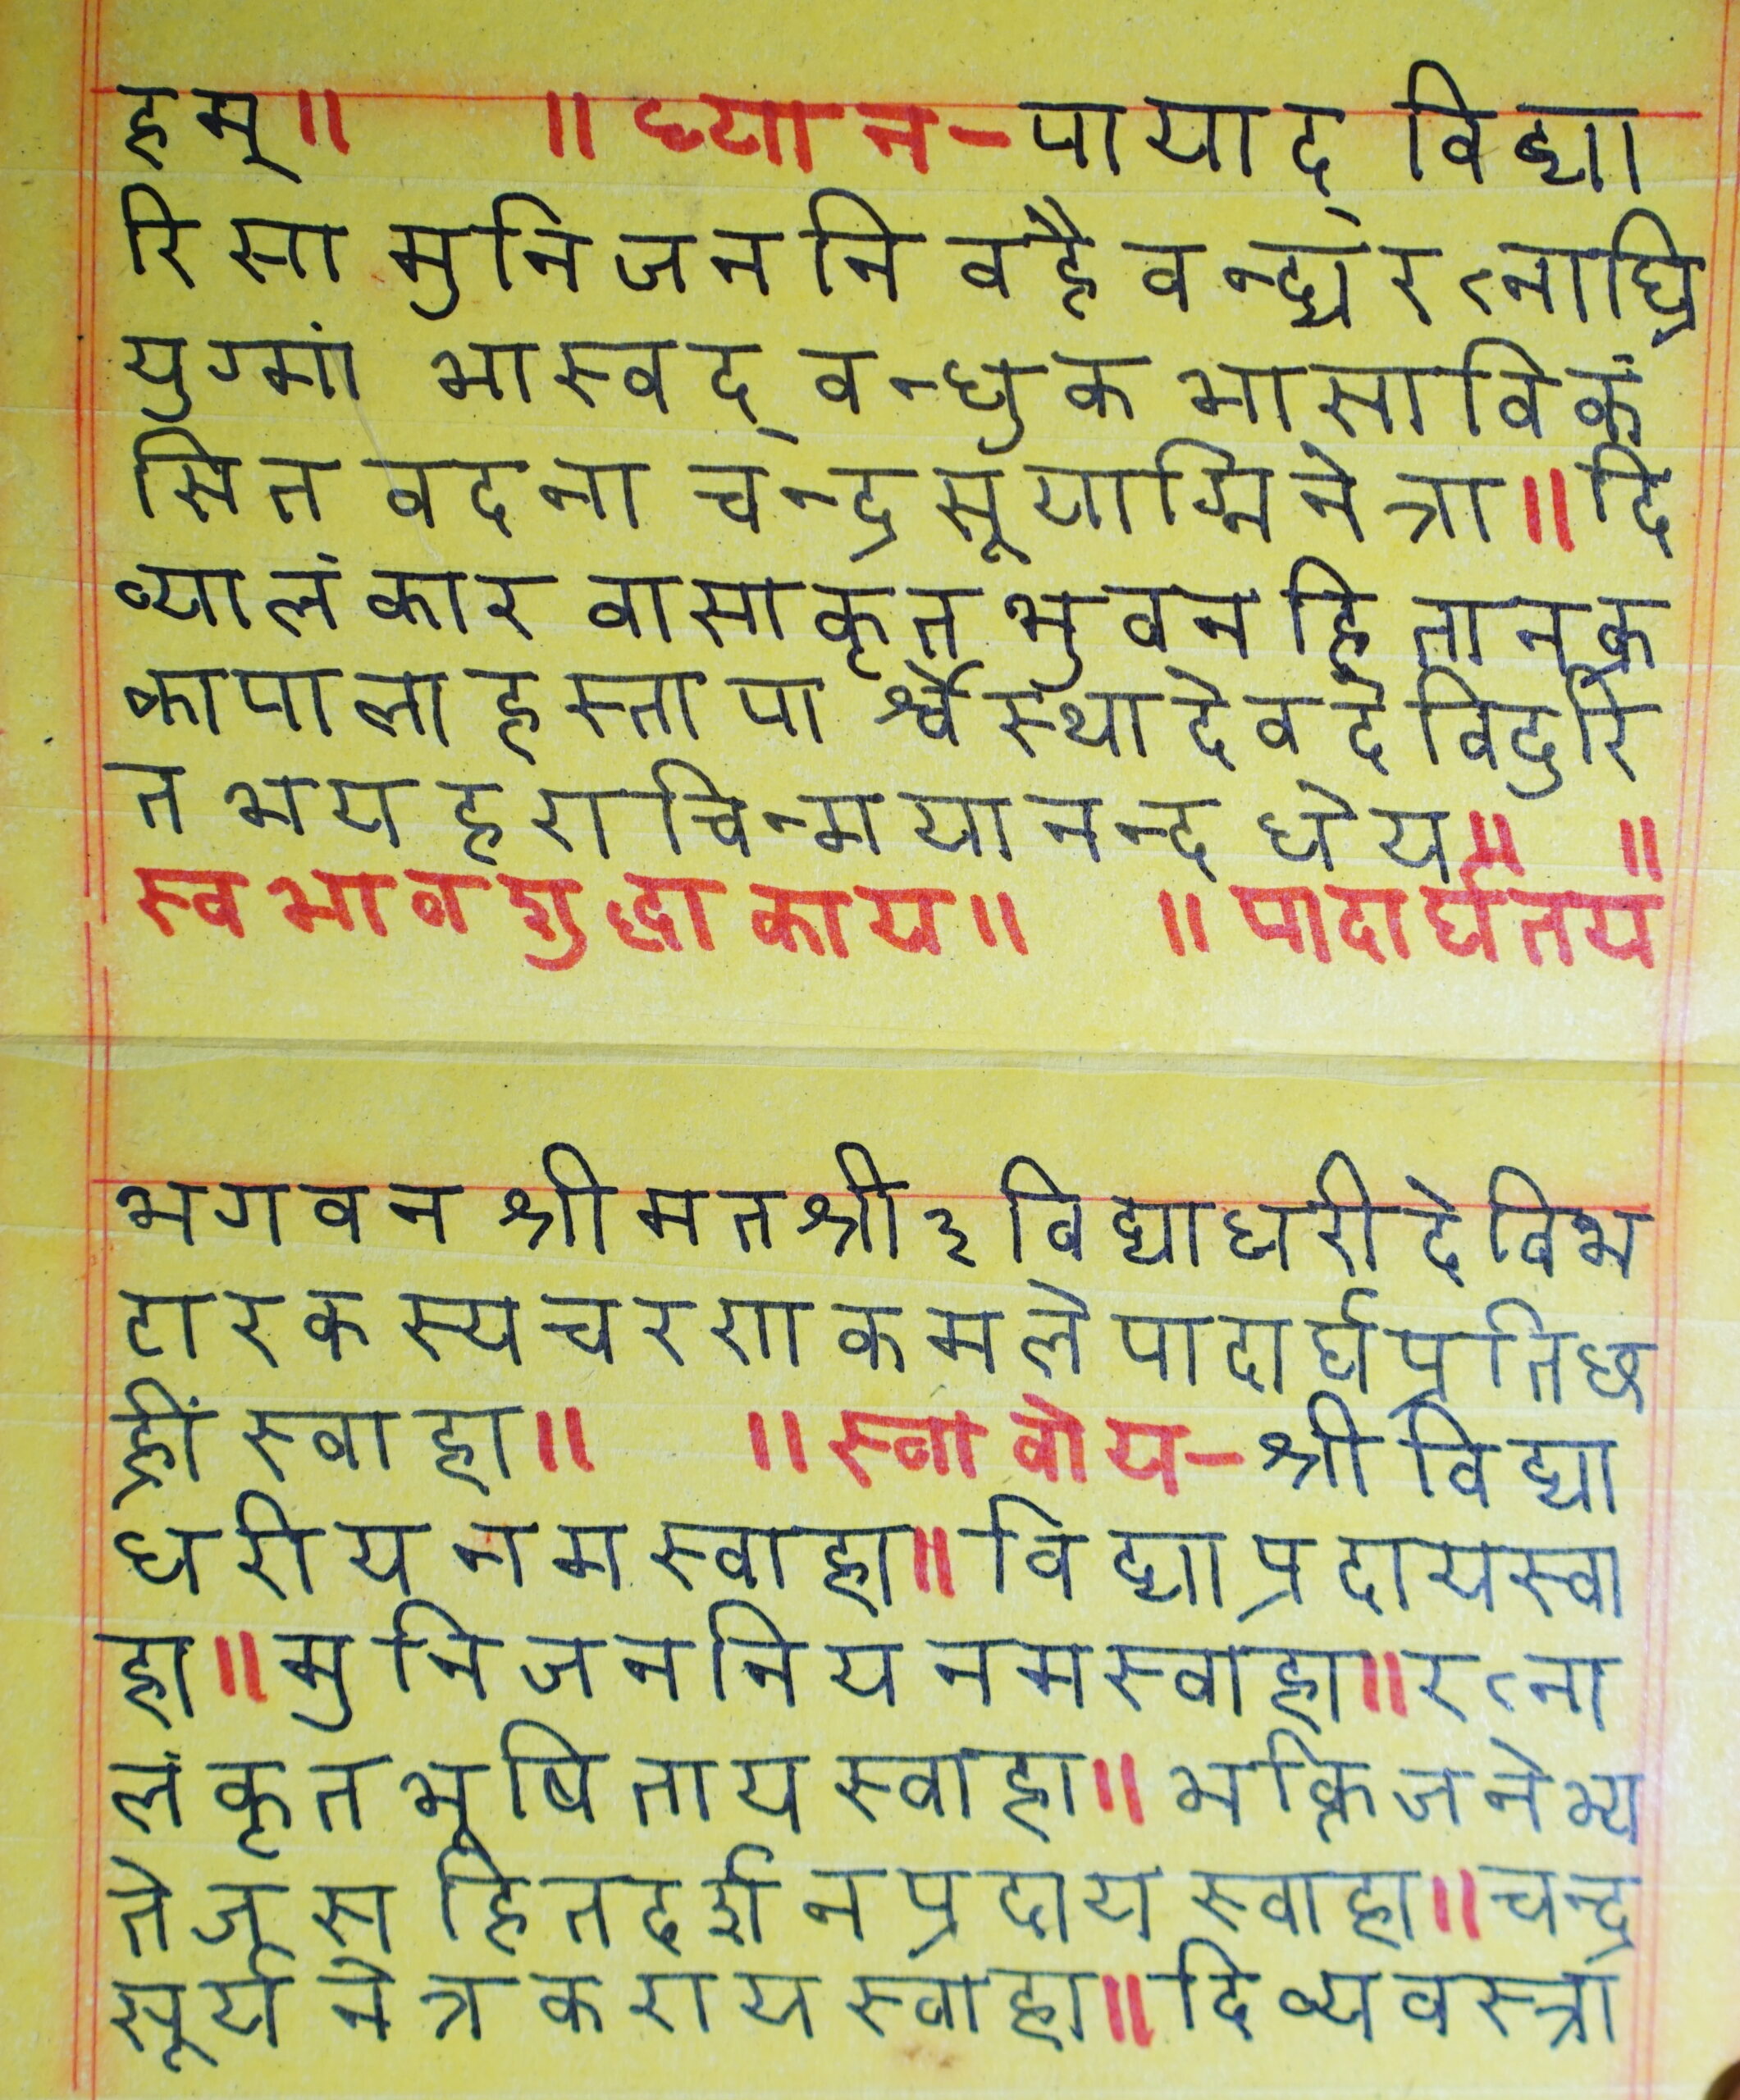 हम्॥ ॥ ध्यान-पायाद् विद्या
रि सा मुनिजननि वहै वन्द्य रत्नाघ्रि
युग्मां भास्वद् वन्धुक भासा विकं
सित वदना चन्द्र सूयाग्नि नेत्रा॥ दि
व्यालंकार वासा कृत भुवन हि तानक्र
कापाला हस्ता पा र्श्वे स्था देव देवि दुरि
त भय हरा चिन्मयानन्द धेय॥ ॥
स्वभाव शुद्धा काय॥ ॥ पादार्घतय
भगवन श्रीमतश्री३विद्याधरी देविभ
टारकस्य चरणकमले पादार्घ प्रतिछ
ह्रीं स्वाहा॥ ॥ स्वा वोय- श्री विद्या
धरीय नम स्वाहा॥ विद्या प्रदाय स्वा
हा॥ मुनिजननिय नम स्वाहा॥ रत्ना
लंकृत भूषिताय स्वाहा॥ भक्तिजनेभ्य
तेज स हित दर्शन प्रदाय स्वाहा॥ चन्द्र
सूर्य नेत्र कराय स्वाहा॥ दिव्य वस्त्रा